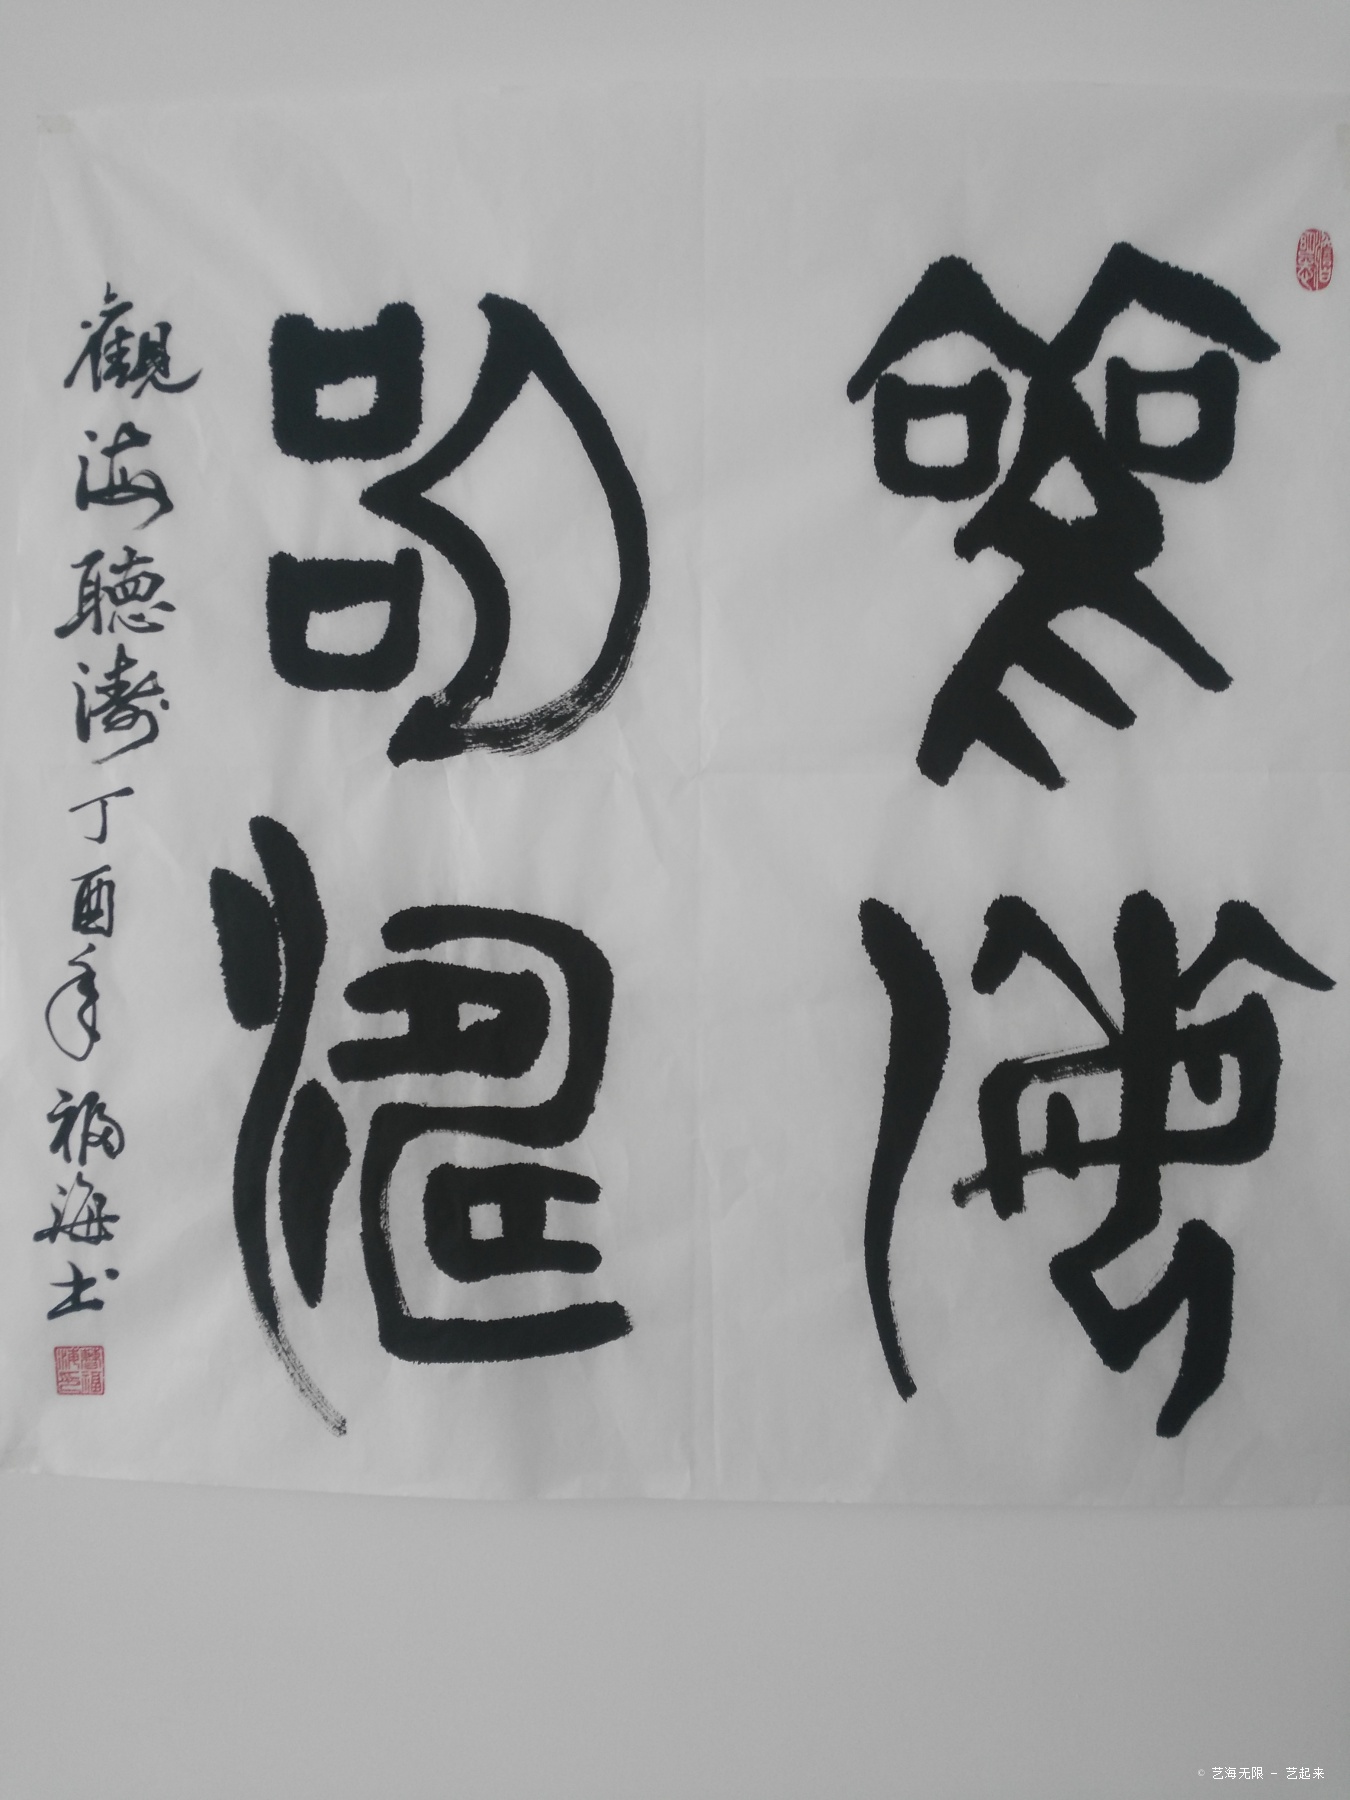 觀海
聽濤
觀海聽濤丁酉年福海书
© 艺海无限 - 艺起来